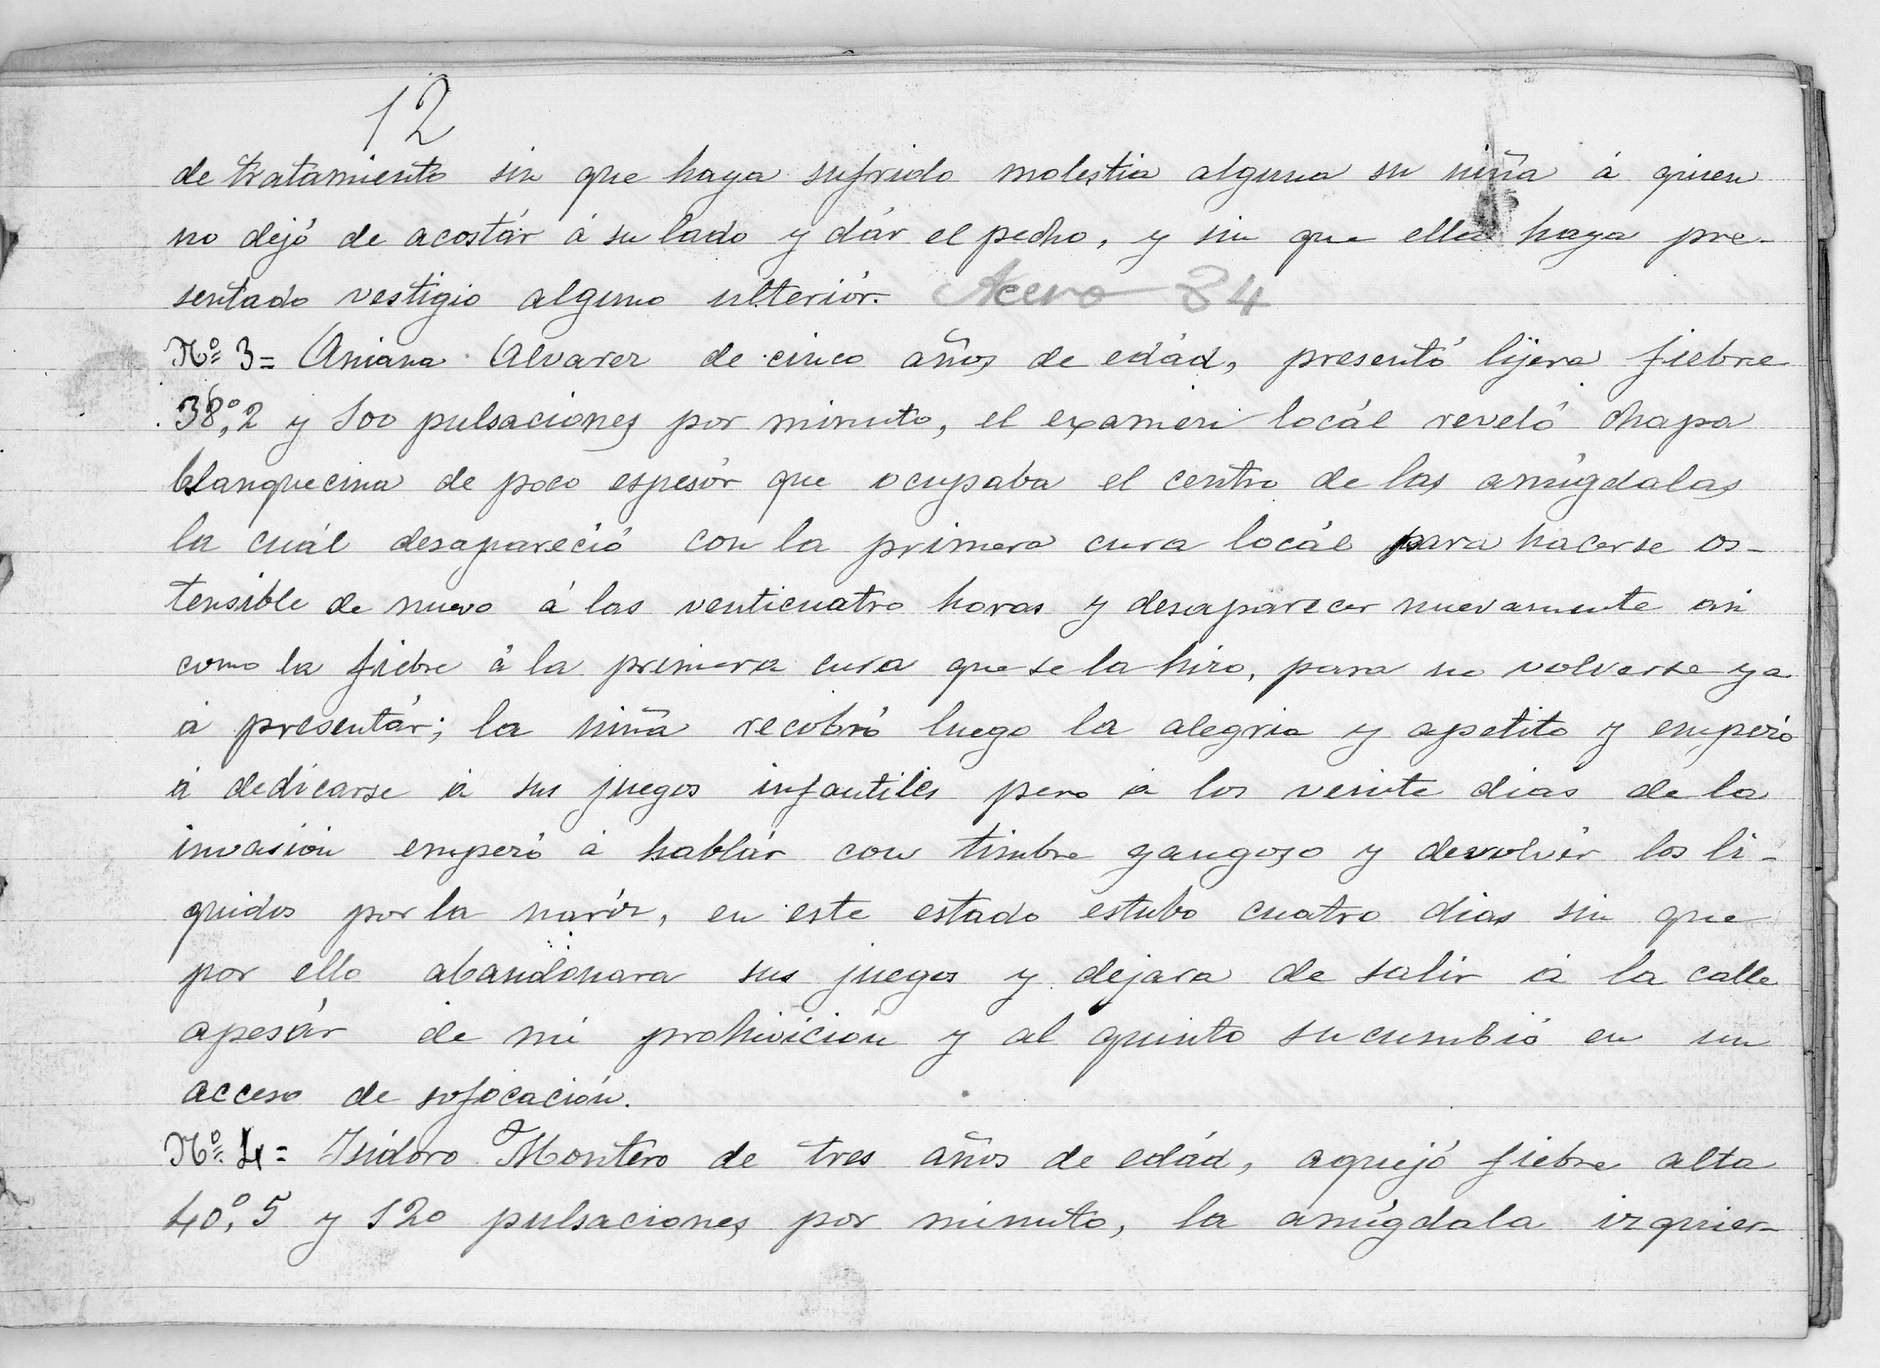 12
de tratamiento sin que haya sufrido molestia alguna su niña á quien
no dejó de acostár á su lado y dár el pecho, y sin que ella haya pre-
sentado vestigio alguno ulteriór. Acero 34
Nº 3= Aniana Alvarez de cinco años de edád, presentó lijera fiebre
38º,2 y 100 pulsaciones por minuto, el examen locál reveló chapa
blanquecina de poco espesór que ocupaba el centro de las amígdalas
la cuál desapareció con la primera cura locál para hacerse os-
tensible de nuevo á las venticuatro horas y desaparecer nuevamente asi
como la fiebre á la primera cura que se la hizo, para no volverse ya
á presentár; la niña recobró luego la alegria y apetito y empezó
á dedicarse á sus juegos infantiles pero á los veinte dias de la
invasión empezó á hablár con timbre gangoso y devolvér los li-
quidos por la naríz, en este estado estubo cuatro dias sin que
por ello abandonara sus juegos y dejara de salir á la calle
apesár de mi prohivición y al quinto sucumbió en un
acceso de sofocación.
Nº 4= Isidoro Montero de tres años de edád, aquejó fiebre alta
40º,5 y 120 pulsaciones por minuto, la amígdala izquier-